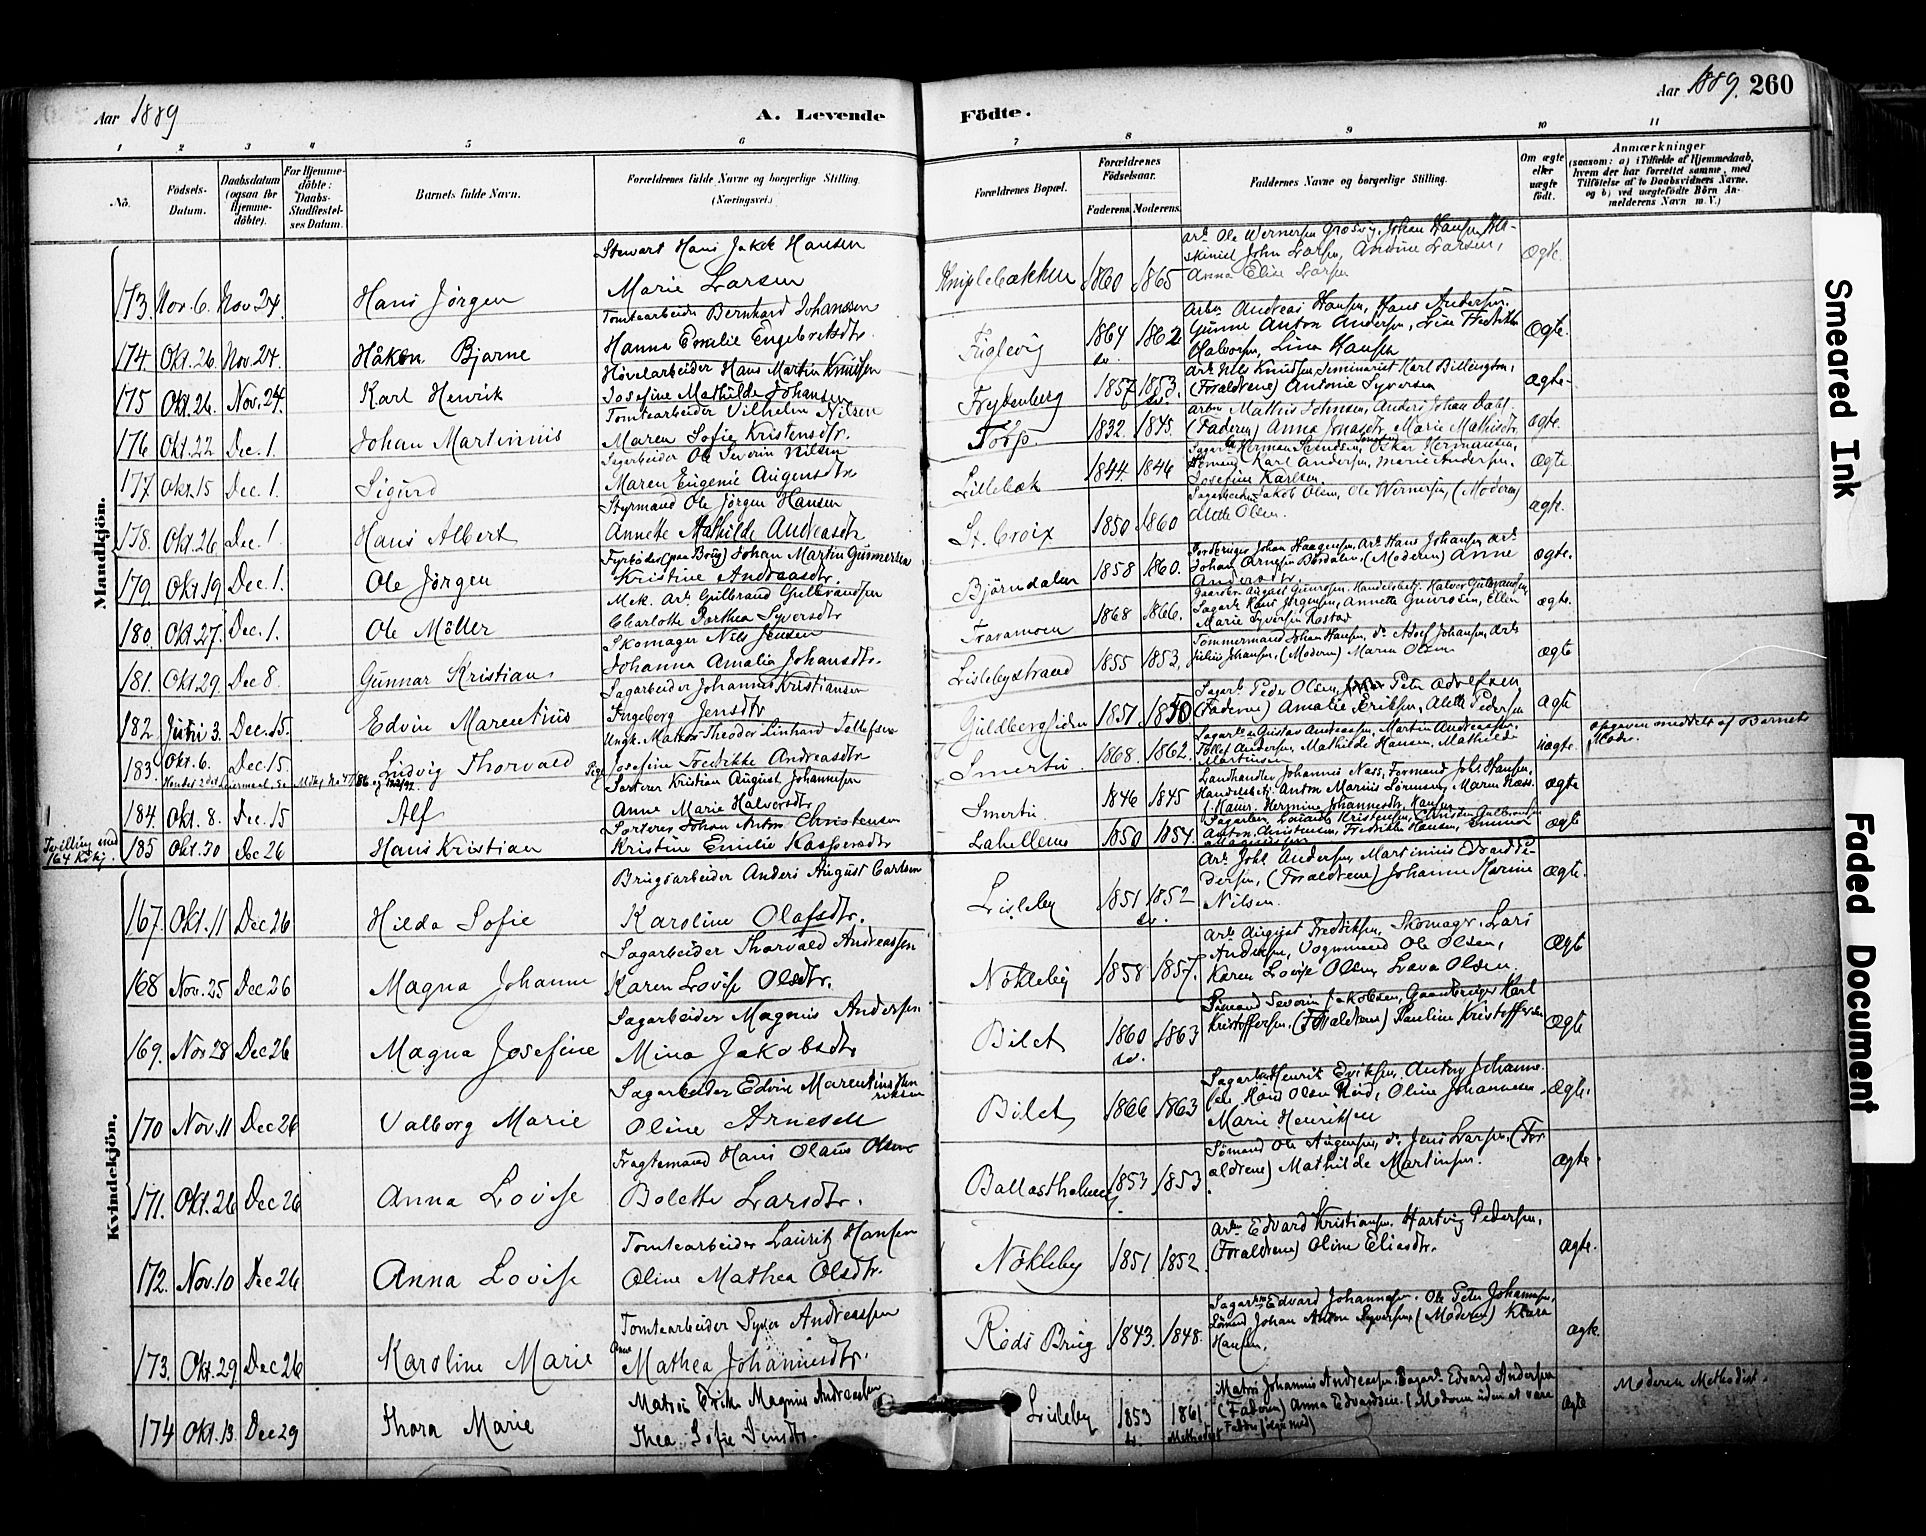 Aar 1889
A. Levende
Födte.
Aar 1889. 260
1 2 3 4 5 6 7 8 9 10 11
No.
Födsels-Datum.
Daabsdatum (ogsaa for Hjemme-döbte).
For Hjemme-döbte: Daabs-Stadfæstel-ses Datum.
Barnets fulde Navn.
Forældrenes fulde Navne og borgerlige Stilling. (Næringsvei.)
Forældrenes Bopæl.
Forældrenes Födselsaar.
Faderens. Moderens.
Faddernes Navne og borgerlige Stilling.
Om ægte eller uægte födt.
Anmærkninger
(saasom: a) i Tilfælde af Hjemmedaab, hvem der har forrettet samme, med Tilföielse af to Daabsvidners Navne, og b) ved uægtefödte Börn An-melderens Navn m. V.)
Mandkjön.
Stewart Hans Jakob Hansen
173. Nov. 6. Nov 24. Hans Jørgen Marie Larsen Kniplebakken 1860 1865 Ole Wernersen Johan Hansen John Larsen, Antone Larsen, Anna Elise Larsen Ægte.
Tomtearbeider Bernhard Johanssen
174. Okt. 26. Nov. 24. Håkon Bjarne Hanna Emilie Engebretsdtr. Fuglevig 1864 1862 Arbr. Andreas Hansen, Hans Andersen. Anton Andersen, Lise Halvorsen, Lina Hansen Ægte.
Høvelarbeider Hans Martin Knudsen
175 Okt. 26. Nov. 24. Karl Henrik Josefine Mathilde Johansen Frydenberg 1857 1853. Nils Knudsen, Seminarist Karl Billington, (Forældrene) Antonie Syversen Ægte.
Tomtearbeider Vilhelm Nilsen
176 Okt. 22 Dec. 1. Johan Martinius Maren Sofie Kristensdtr. Torp. 1832. 1845. Mathis Johnsen, Anders Johan Dahl. (Faderen) Anna Jonasdtr, Marie Mathisdtr. Ægte.
Sagarbeider Ole Severin Nilsen
177 Okt. 15 Dec. 1. Sigurd Maren Eugenie Augensdtr. Lislebæk 1844. 1846 Herman Svendsen, Oskar Hermansen, Karl Andersen, Marie Andersen. Josefine Karlsen. Ægte
Styrmand Ole Jørgen Hansen
178. Okt. 26 Dec. 1. Hans Albert Annette Mathilde Andreasdtr St. Croix 1850 1860 Jakob Olsen, Ole Wernersen, (Moderen) Alette Olsen. Ægte.
Fyrbøder (paa Brug) Johan Martin Gunnersen
179. Okt. 19 Dec. 1. Ole Jørgen Kristine Andreasdtr. Bjørndalen 1858 1860. Johan Haagensen, Arb. Hans Johansen, Johan Arnesen (Moderen) Anne Andersdtr. Ægte.
Mek. Arb. Gulbrand Gulbrandsen
180. Okt. 27. Dec. 1. Ole Möller Charlotte Dorthea Syversdtr. Traramoen 1868 1866. August Gunrosen, Halvor Gulbrandsen, Hans Jørgensen, Annette Gunrosen, Ellen Marie Syversen Ægte.
Skomager Nils Jensen
181. Okt. 29. Dec. 8. Gunnar Kristian Johanna Amalia Johansdtr. Lislebystrand 1855 1853. Tømmermand Johan Hansen, do Adolf Johansen, Julius Johansen, (Moderen) Maren Olsen Ægte
Sagarbeider Johannes Kristiansen
182. Juni 3. Dec. 15. Edvin Marentius Ingeborg Jensdtr Guldbergsiden 1851 1850 Sagarb. Peder Olsen, Peter Adolfsen (Faderne) Amalie Eriksen, Alette Pedersen Ægte
Ungk. Matros Theodor Linhard Tollefsen
183. Okt. 6. Dec. 15 Ludvig Thorvald Pige Josefine Fredrikke Andreasdtr. Smertu 1868. 1862. Gustav Andreassen, Martin Andreassen, Tollef Andersen, Mathilde Hansen, Mathilde Martinsen Uægte. Opgaven meddelt af Barnets Moder.
Sorterer Kristian August Johannesen
184. Okt. 8. Dec. 15 Alf Anne Marie Halvorsdtr Smertu. 1846 1845 Landhandler Johannes Næss, Formand Joh. Hansen, Handelsbetj. Anton Marius Sørensen, Maren Næss. Hermine Johannesdtr. Hansen Ægte
Sorterer Johan Anton Christensen
Tvilling med 164 Kvkj. 185 Okt. 30 Dec 26 Hans Kristian Kristine Emilie Kaspersdtr Lahellene 1850 1854. Kristensen, Christen Gulbrandsen Anton Christensen, Fredrikke Hansen, Magnussen Ægte
Kvindekjön.
Brugsarbeider Anders August Carlsen
167. Okt. 11 Dec 26 Hilda Sofie Karoline Olafsdtr. Lisleby 1851 1852 Arb. Johs. Andersen, Martinius Edvard Pedersen, (Forældrene) Johanne Karine Nilsen. Ægte.
Sagarbeider Thorvald Andreassen
168 Nov. 25 Dec 26 Magna Johanne Karen Lovise Olsdtr. Nökleby 1858 1857. Arb. August Fredriksen, Skomagr. Lars Andersen, Vognmand Ole Olsen, Karen Lovise Olsen, Lava Olsen. Ægte
Sagarbeider Magnus Andersen
169. Nov 28 Dec 26 Magna Josefine Mina Jakobsdtr Bilet 1860 1863 Sømand Severin Jakobsen, Gaardbruger Karl Kristoffersen. (Forældrene) Pauline Kristoffersen Ægte
Sagarbeider Edvin Marentius Henriksen
170 Nov. 11 Dec 26 Valborg Marie Oline Arnesen Bilet 1866 1863 Henrik Eriksen, Anton Johannesen, Hans Olsen Oline Johannesen, Marie Henriksen Ægte.
Fragtemand Hans Olaus Olsen
171. Okt. 26 Dec 26 Anna Lovise Bolette Larsdtr. Ballastholmen 1853 1853 Sømand Ole Augensen, do Jens Larsen, (Forældrene) Mathilde Martinsen. Ægte.
Tomtearbeider Lauritz Hansen
172. Nov. 10 Dec 26 Anna Lovise Oline Mathea Olsdtr. Nökleby 1851. 1852 Edvard Kristiansen, Hartvig Pedersen, (Forældrene) Oline Eliasdtr. Ægte.
Tomtearbeider Syver Andreassen
173. Okt. 29 Dec 26 Karoline Marie Anne Mathea Johannesdtr. Røds Brug 1843. 1848. Edvard Johannesen, Ole Peter Johannesen, Sømand Johan Anton Syversen (Moderen) Klara Hansen. Ægte.
Matros Erik Magnus Andreassen
174 Okt. 13. Dec 29 Thora Marie Thea Sofie Jensdtr. Lisleby 1853 1861 Methodist Matros Johannes Andreassen. Edvard Andersen (Faderen) Anna Edvardsen. (Moderen uden at være Fadder Ægte Moderen Methodist.
Smeared Ink
Faded Document